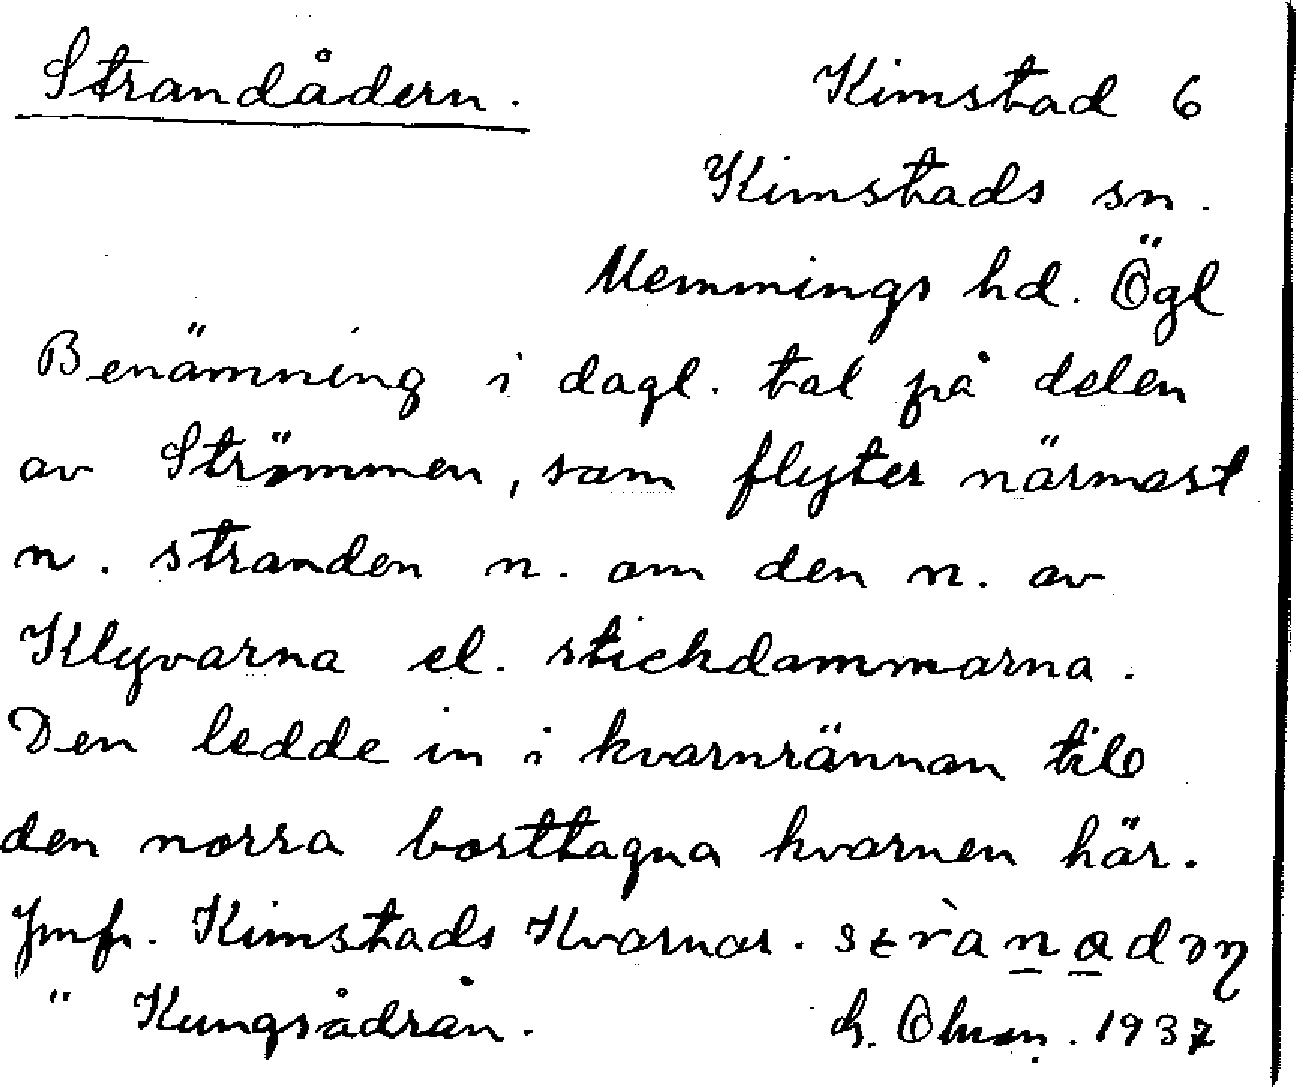 Strandådern. Kimstad 6
Kimstads sn.
Memmings hd. Ögl
Benämning i dagl. tal på delen
av Strömmen, som flyter närmast
n. stranden n. om den n. av
Klyvarna el. stickdammarna.
Den ledde in i kvarnrännan till
den norra borttagna kvarnen här.
Jmfr. Kimstads Kvarnar.
" Kungsådran. 1937